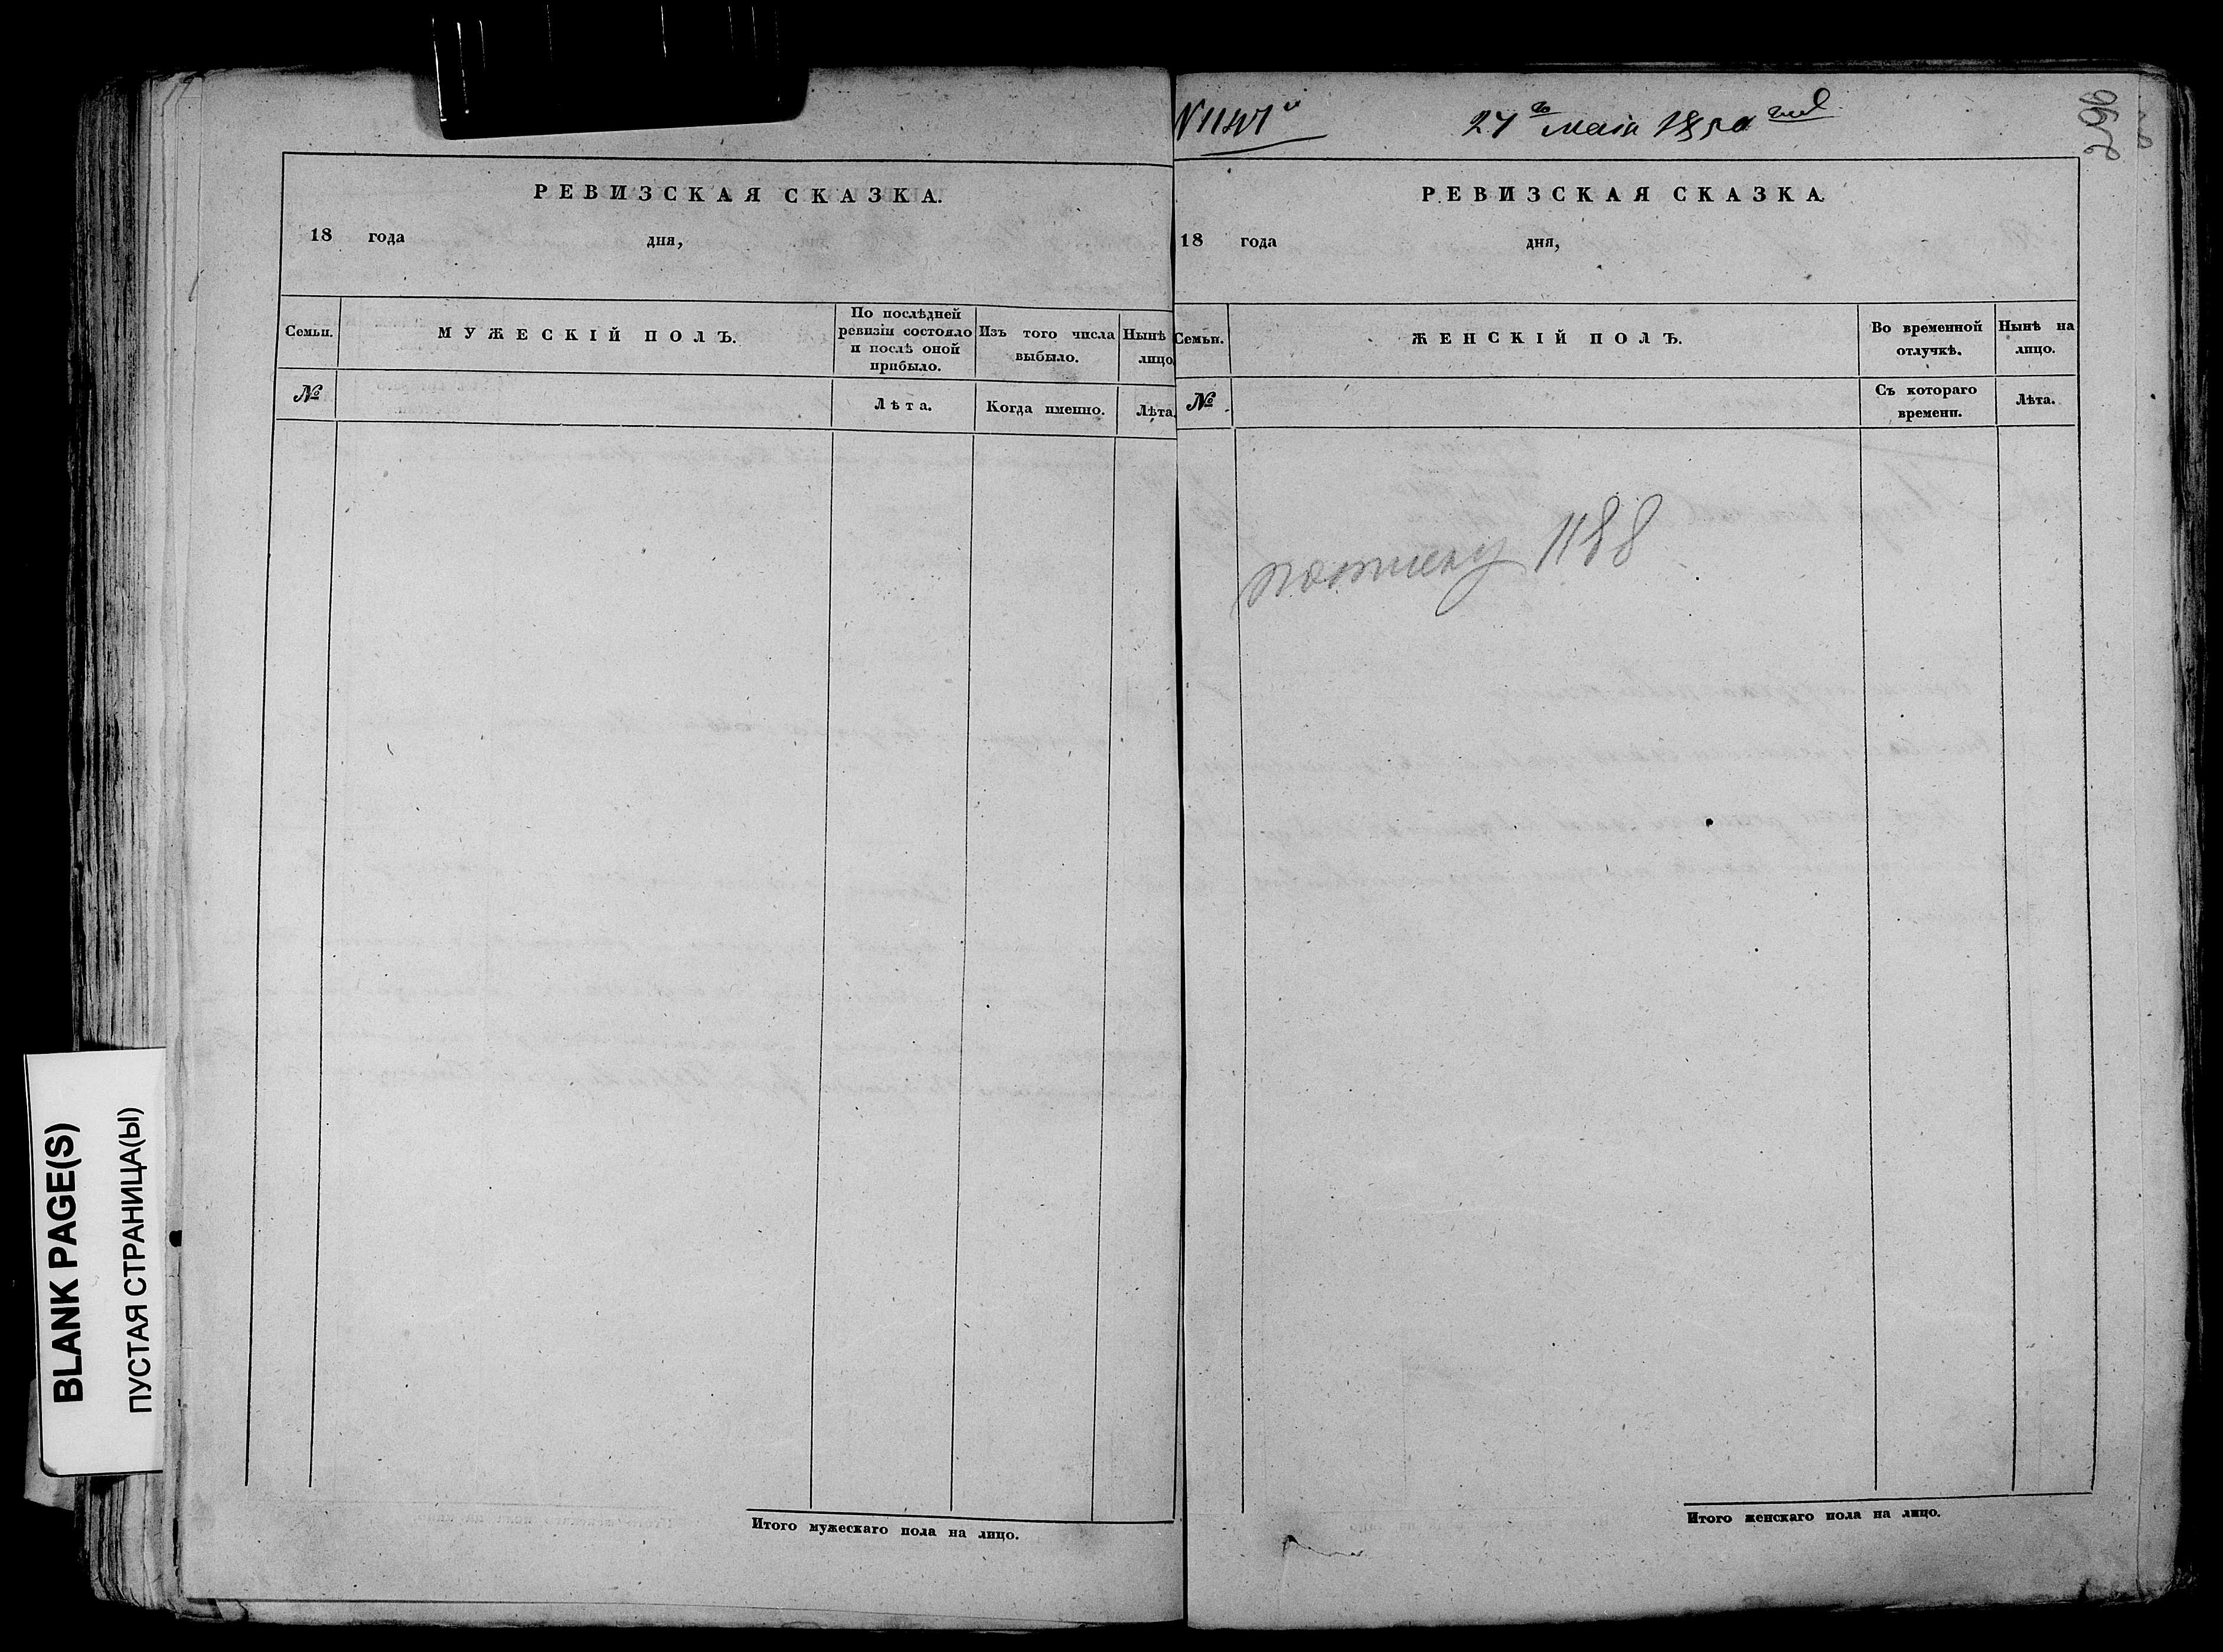 РЕВИЗСКАЯ СКАЗКА.
18 года дня,
Семьи.
МУЖЕСКІЙ ПОЛЪ.
По послѣдней ревизіи состояло и послѣ оной прибыло.
Изъ того числа выбыло.
Нынѣ лицо
№
Лѣта.
Когда именно.
Лѣта
Итого мужескаго пола на лицо.
27го Маія 1850 год
296
РЕВИЗСКАЯ СКАЗКА
18 года дня,
Семьи.
ЖЕНСКІЙ ПОЛЪ.
Во временной отлучкѣ.
Нынѣ на лицо.
№
Съ котораго времени.
Лѣта.
1188
Итого женскаго пола на лицо.
BLANK PAGE(S)
ПУСТАЯ СТРАНИЦА(Ы)